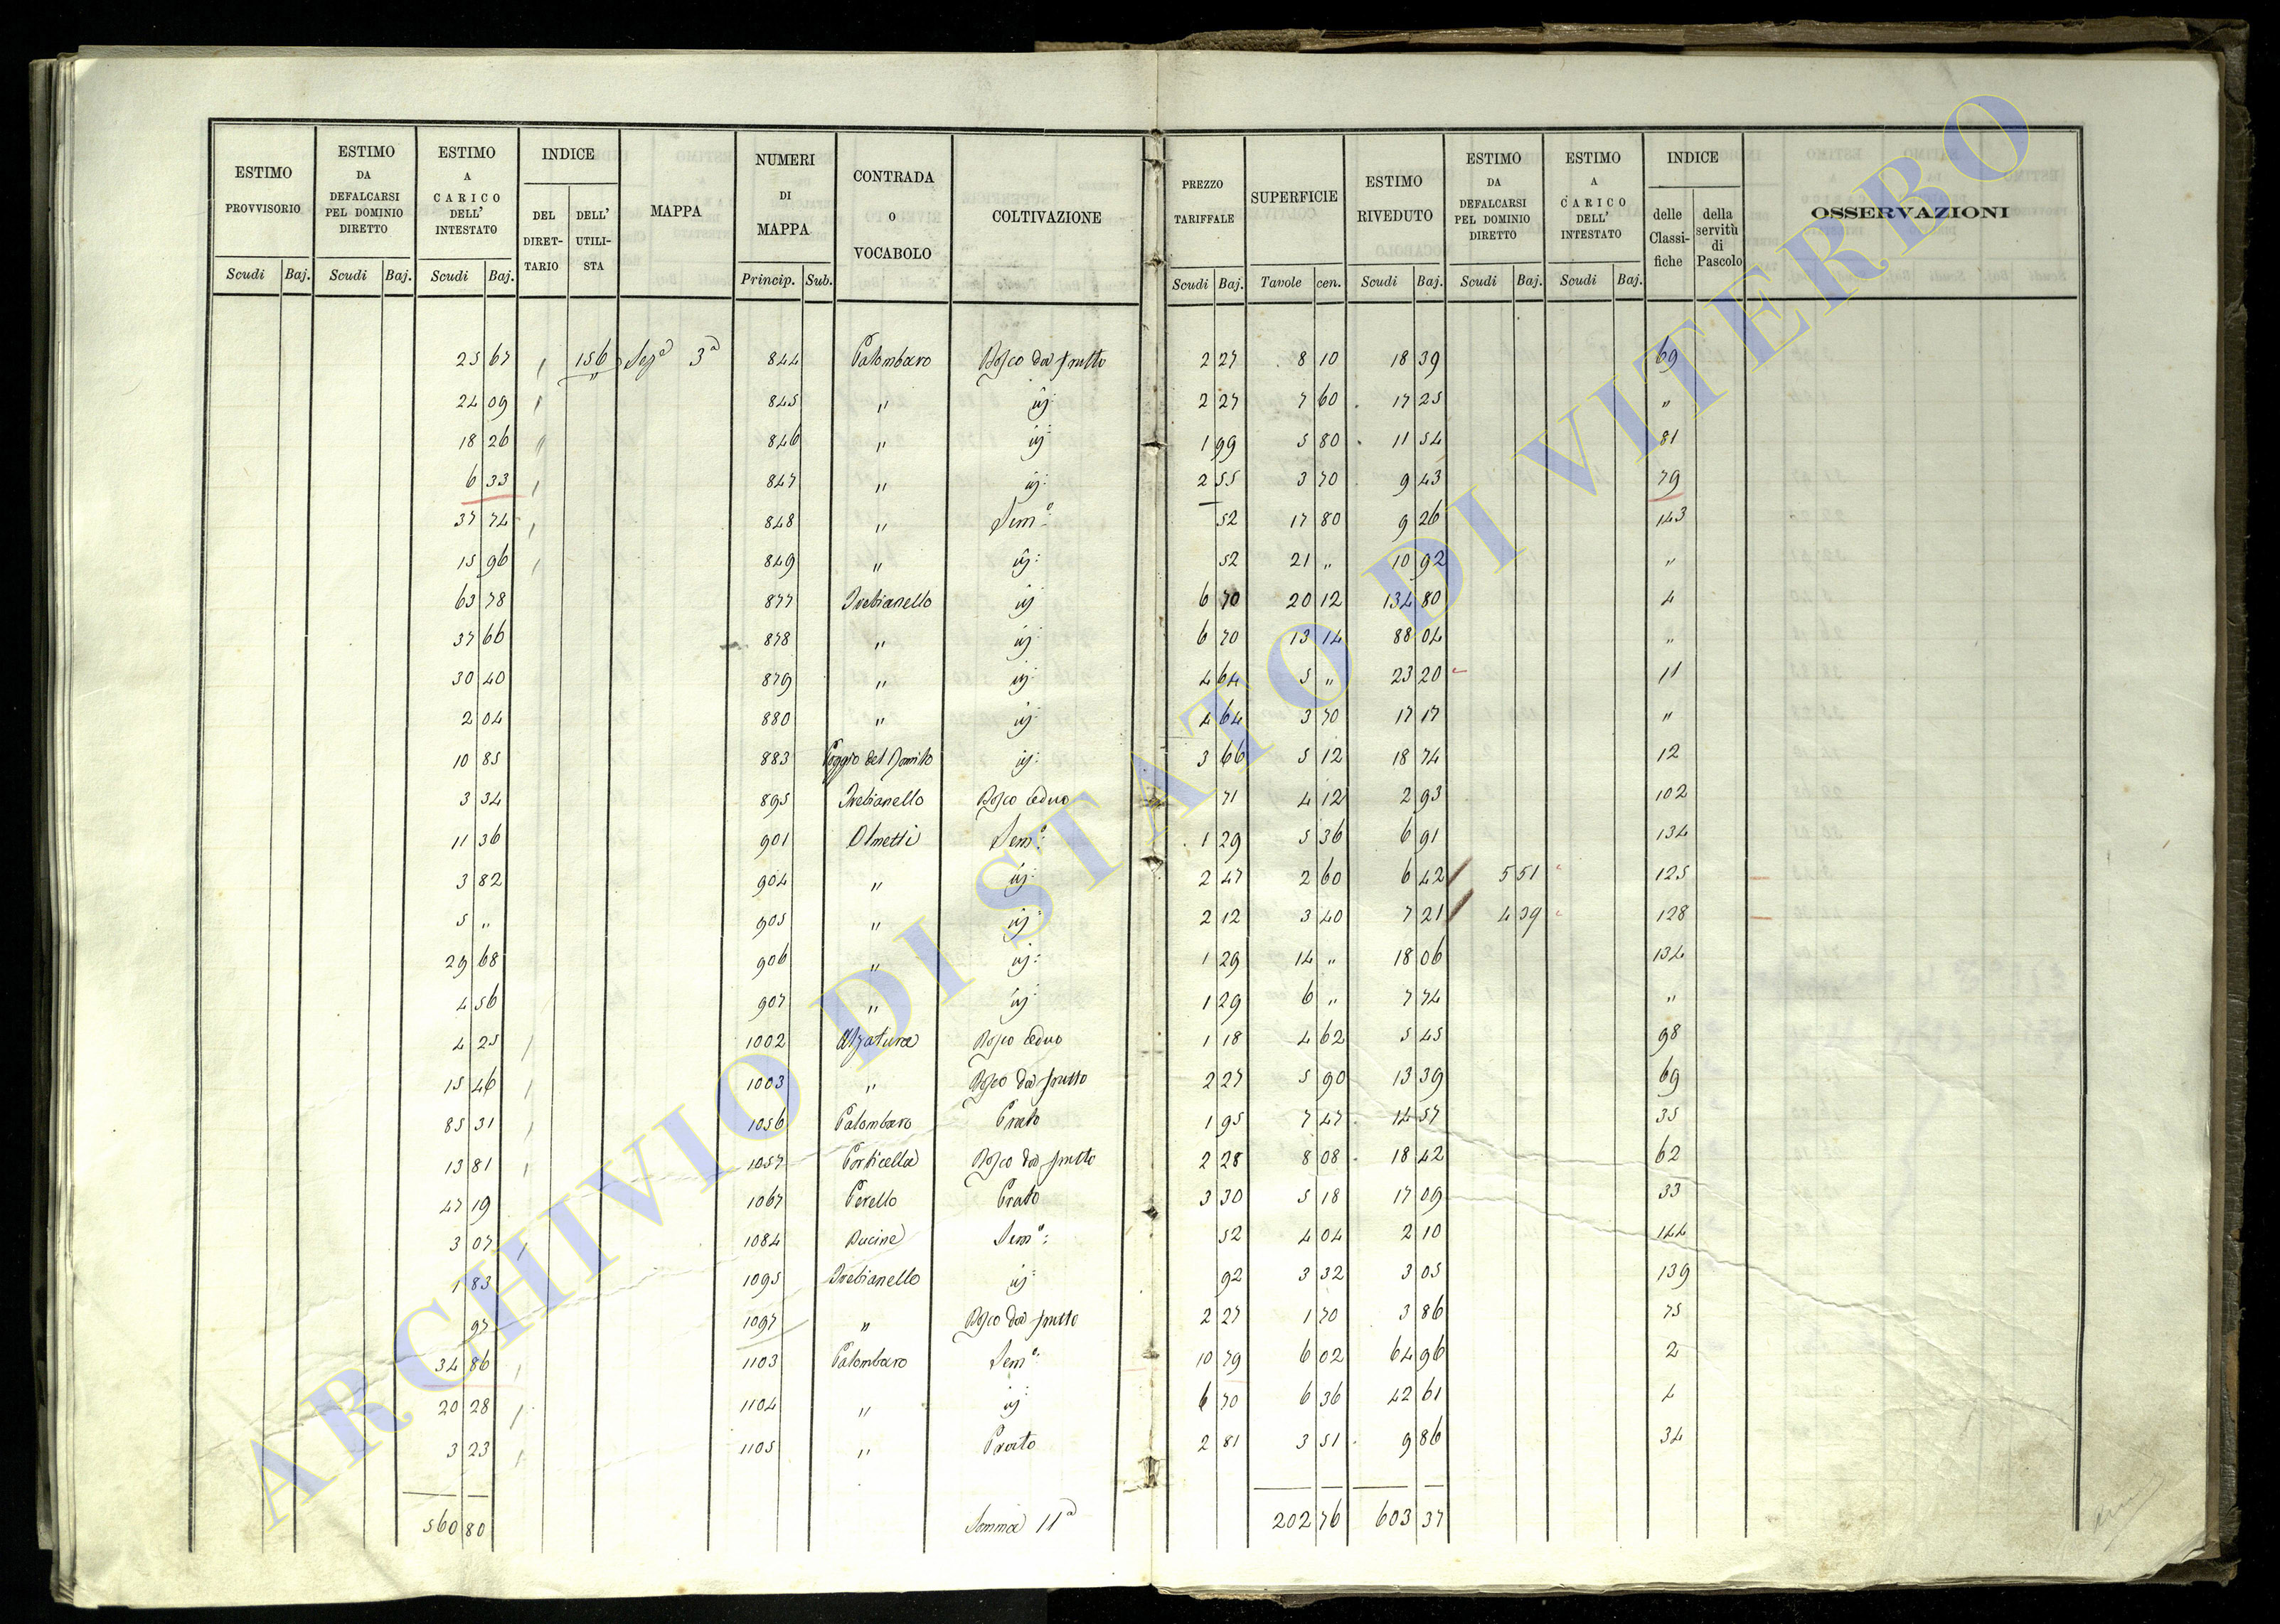 ESTIMO PROVVISORIO | ESTIMO DA DEFALCARSI PEL DOMINIO DIRETTO | ESTIMO A CARICO DELL' INTESTATO | INDICE DEL DIRETTARIO | DELL' UTILISTA | MAPPA | NUMERI DI MAPPA | CONTRADA O VOCABOLO | COLTIVAZIONE | PREZZO TARIFFALE | SUPERFICIE | ESTIMO RIVEDUTO | ESTIMO DA DEFALCARSI PEL DOMINIO DIRETTO | ESTIMO A CARICO DELL' INTESTATO | INDICE delle Classifiche | della servitù di Pascolo | OSSERVAZIONI
Scudi Baj. Scudi Baj. Scudi Baj. Princip. Sub. Scudi Baj. Tavole cen. Scudi Baj. Scudi Baj. Scudi Baj.
25 67 156 Sezª 3ª 844 Palombaro Bosco da frutto 2 27 8 10 18 39 69
24 09 845 " id: 2 27 7 60 17 25 "
18 26 846 " id: 1 99 5 80 11 54 81
6 33 847 " id: 2 55 3 70 9 43 79
37 74 848 " Semº: 52 17 80 9 26 143
15 96 849 " id: 52 21 " 10 92 "
63 78 877 Trebianello id 6 70 20 12 134 80 4
37 66 878 " id: 6 70 13 14 88 04 "
30 40 879 " id: 4 64 5 " 23 20 11
2 04 880 " id: 4 64 3 70 17 17 "
10 85 883 Poggio del id: 3 66 5 12 18 74 12
3 34 895 Trebianello Bosco Ceduo 71 4 12 2 93 102
11 36 901 Olmetti Semº: 1 29 5 36 6 91 134
3 82 904 " id: 2 47 2 60 6 42 5 51 125
5 " 905 " id: 2 12 3 40 7 21 4 39 128
29 68 906 " id: 1 29 14 " 18 06 134
4 56 907 " id: 1 29 6 " 7 74 "
4 25 1002 Alzatura Bosco Ceduo 1 18 4 62 5 45 98
15 46 1003 " Bosco da frutto 2 27 5 90 13 39 69
85 31 1056 Palombaro Prato 1 95 7 47 14 57 35
13 81 1057 Porticella Bosco da frutto 2 28 8 08 18 42 62
47 19 1067 Perello Prato 3 30 5 18 17 09 33
3 07 1084 Semº: 52 4 04 2 10 144
1 83 1095 Trebianello id: 92 3 32 3 05 139
97 1097 " Bosco da frutto 2 27 1 70 3 86 75
34 86 1103 Palombaro Semº: 10 79 6 02 64 96 2
20 28 1104 " id: 6 70 6 36 42 61 4
3 23 1105 " Prato 2 81 3 51 9 86 34
560 80 Somma 11ª 202 76 603 37
ARCHIVIO DI STATO DI VITERBO